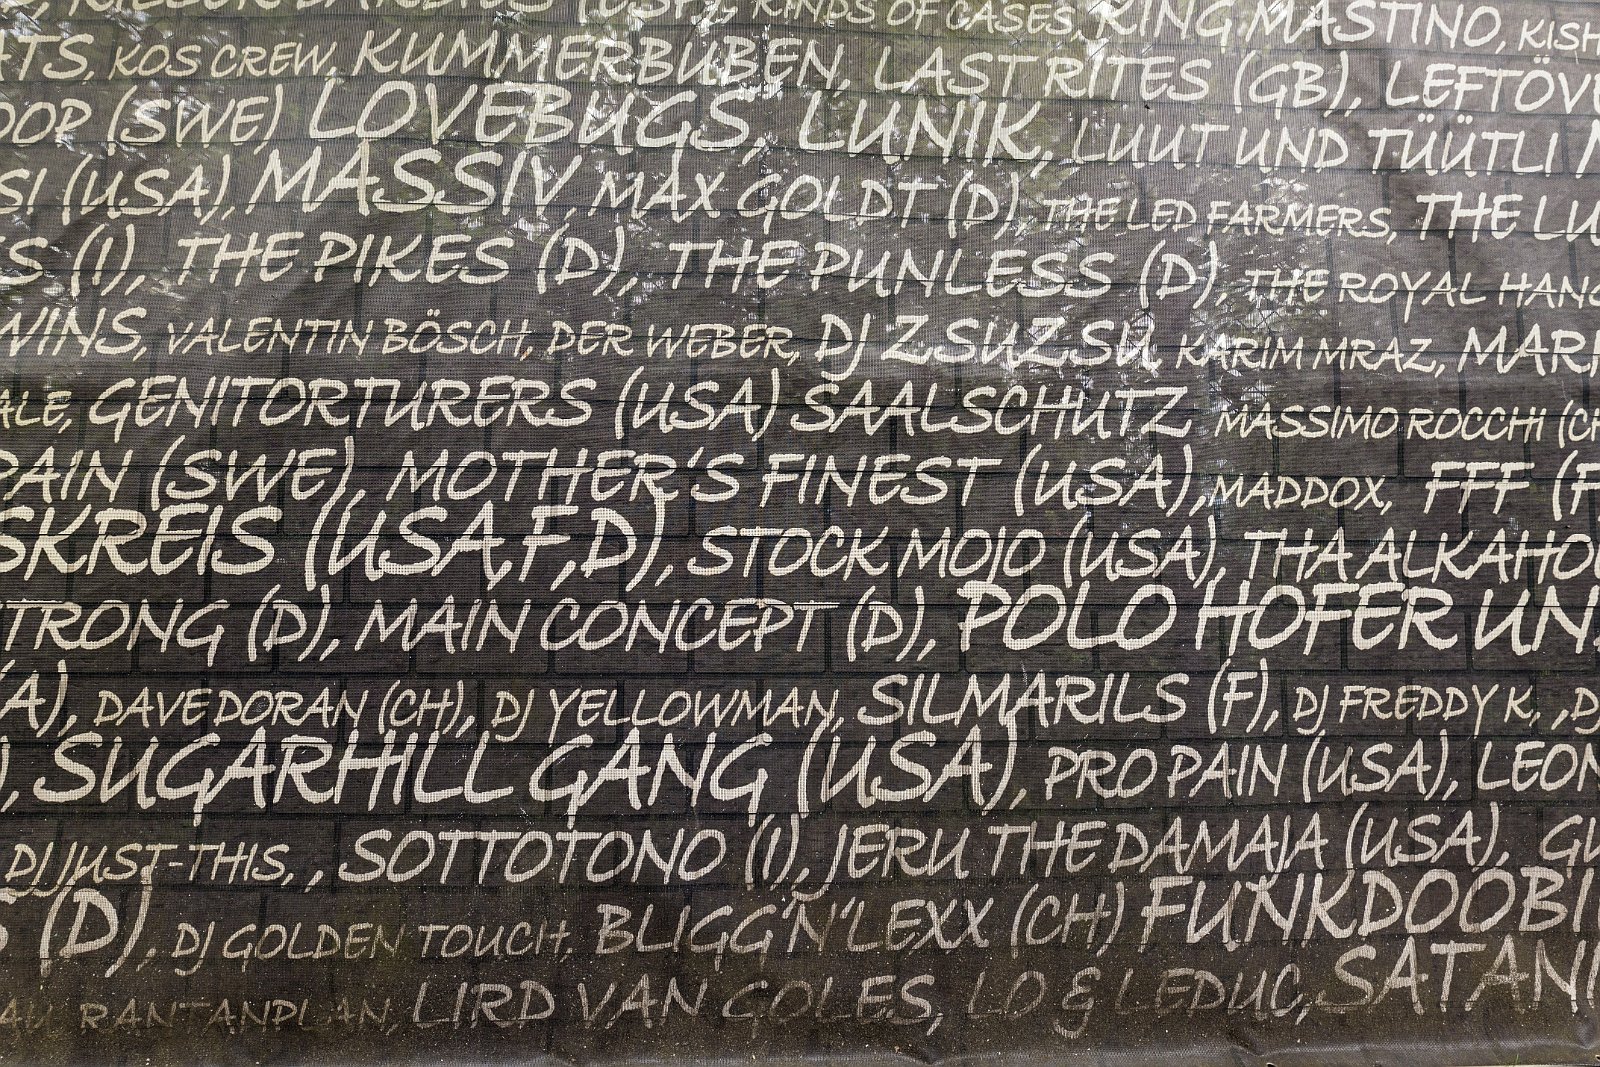 (USA), KINDS OF CASES, KING MASTINO, KISH
ATS, KOS CREW, KUMMERBUBEN, LAST RITES (GB), LEFTÖV
OOP (SWE) LOVEBUGS, LUNIK, LUUT UND TÜÜTLI
SI (USA), MASSIV, MAX GOLDT (D), THE LED FARMERS, THE LU
S (I), THE PIKES (D), THE PUNLESS (D), THE ROYAL HANG
WINS, VALENTIN BÖSCH, DER WEBER, DJ ZSUZSU, KARIM MRAZ, MAR
ALE, GENITORTURERS (USA) SAALSCHUTZ MASSIMO ROCCHI (CH
PAIN (SWE), MOTHER'S FINEST (USA), MADDOX, FFF (F
SKREIS (USA,F,D), STOCK MOJO (USA), THA ALKAHO
TRONG (D), MAIN CONCEPT (D), POLO HOFER UN
A), DAVE DORAN (CH), DJ YELLOWMAN, SILMARILS (F), DJ FREDDY K, ,D
), SUGARHILL GANG (USA), PRO PAIN (USA), LEON
DJ JUST-THIS, , SOTTOTONO (I), JERU THE DAMAJA (USA), GU
S (D), DJ GOLDEN TOUCH, BLIGG'N'LEXX (CH) FUNKDOOBI
RANTANPLAN, LIRD VAN GOLES, LO & LEDUC, SATANI